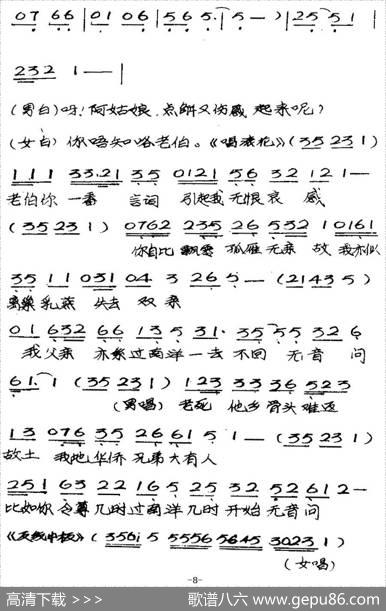 07 66 | 01 06 | 56 5. | 5 — ) | 25 51 |
232 1 — — |
(男白)呀!阿姑娘,点解又伤感起来呢?
(女白)你唔知咯老伯。《唱滚花》(35 231)
111 33.21 35 0121 56 32 121 —
老伯你一番 言词 引起我无恨哀 感
(35 231) 0762 235 26 532 10161
你自比飘零孤雁无亲 故 我亦似
35 11 031 04 3 26 5 — (21435)
乳燕 失去 双亲
01 632 66 135 31. 35 55 32 6
我父亲 亦系过南洋一去不回 无音 问
61. 1 (35 231) 123 33 36 523
(男唱) 老死 他乡骨头难返
13 076 35 26 61 5 1 — (35 231)
故土 我地华侨兄弟大有人
251 63 22 165 25 32 52 61 2 —
比如你 几时过南洋几时开始无音问
(356i 5 5556 5645 3023 1)
(女唱)
-8-
高清下载 >>>
歌谱八六 www.gepu86.com